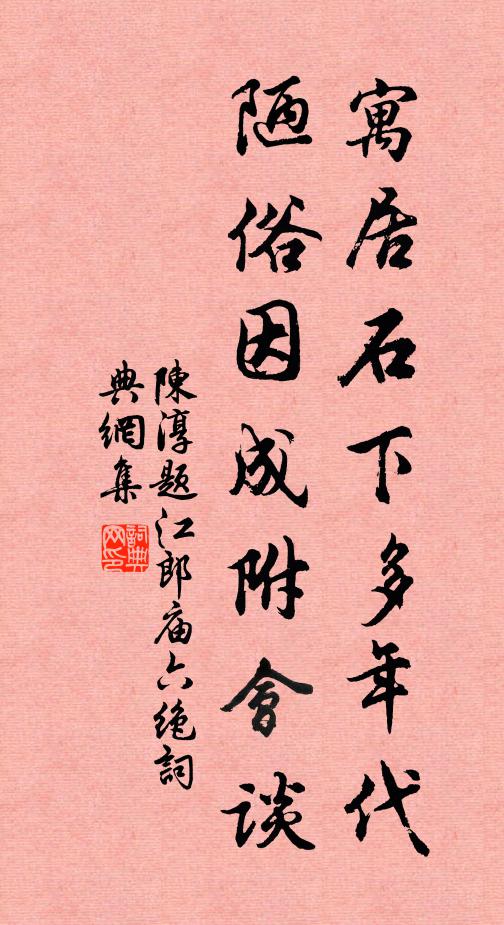 寓居石下多年代
陋俗因成附會谈
陳淳题江郎庙六绝詞
典網集
詞典网印